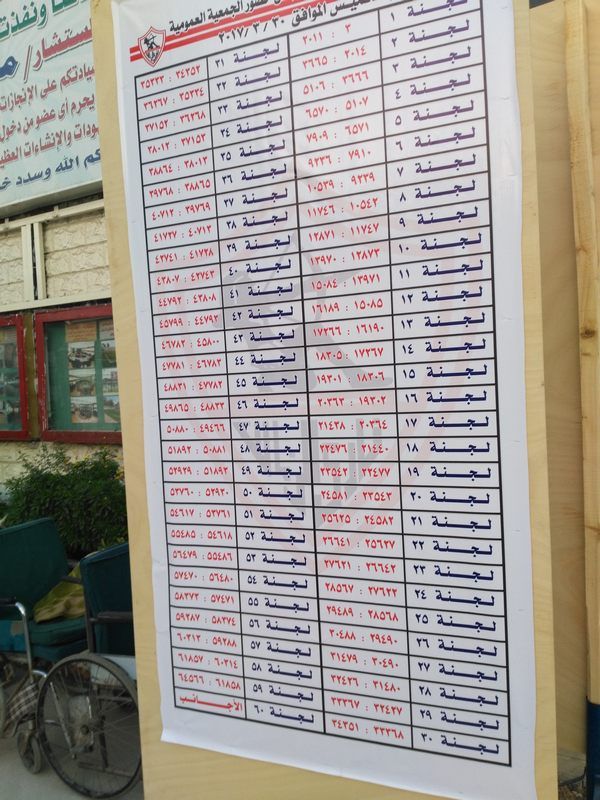 حضور الجمعية العمومية
الخميس الموافق ٢٠١٧/٣/٣٠
لجنة ١ ٣ : ٢٠١١ لجنة ٣١ ٣٤٢٥٢ : ٣٥٣٣٣
لجنة ٢ ٢٠١٤ : ٣٦٦٥ لجنة ٣٢ ٣٥٣٣٤ : ٣٦٢٦٧
لجنة ٣ ٣٦٦٦ : ٥١٠٦ لجنة ٣٣ ٣٦٢٦٨ : ٣٧١٥٢
لجنة ٤ ٥١٠٧ : ٦٥٧٠ لجنة ٣٤ ٣٧١٥٣ : ٣٨٠١٢
لجنة ٥ ٦٥٧١ : ٧٩٠٩ لجنة ٣٥ ٣٨٠١٣ : ٣٨٨٦٤
لجنة ٦ ٧٩١٠ : ٩٢٣٦ لجنة ٣٦ ٣٨٨٦٥ : ٣٩٧٦٨
لجنة ٧ ٩٢٣٩ : ١٠٥٣٩ لجنة ٣٧ ٣٩٧٦٩ : ٤٠٧١٢
لجنة ٨ ١٠٥٤٢ : ١١٧٤٦ لجنة ٣٨ ٤٠٧١٣ : ٤١٧٢٧
لجنة ٩ ١١٧٤٧ : ١٢٨٧١ لجنة ٣٩ ٤١٧٢٨ : ٤٢٧٤١
لجنة ١٠ ١٢٨٧٣ : ١٣٩٧٠ لجنة ٤٠ ٤٢٧٤٣ : ٤٣٨٠٧
لجنة ١١ ١٣٩٧١ : ١٥٠٨٤ لجنة ٤١ ٤٣٨٠٨ : ٤٤٧٩٢
لجنة ١٢ ١٥٠٨٥ : ١٦١٨٩ لجنة ٤٢ ٤٤٧٩٣ : ٤٥٧٩٩
لجنة ١٣ ١٦١٩٠ : ١٧٢٦٦ لجنة ٤٣ ٤٥٨٠٠ : ٤٦٧٨٢
لجنة ١٤ ١٧٢٦٧ : ١٨٣٠٥ لجنة ٤٤ ٤٦٧٨٣ : ٤٧٧٨١
لجنة ١٥ ١٨٣٠٦ : ١٩٣٠١ لجنة ٤٥ ٤٧٧٨٢ : ٤٨٨٣١
لجنة ١٦ ١٩٣٠٢ : ٢٠٣٦٣ لجنة ٤٦ ٤٨٨٣٣ : ٤٩٨٦٥
لجنة ١٧ ٢٠٣٦٤ : ٢١٤٣٨ لجنة ٤٧ ٤٩٤٦٦ : ٥٠٨٨٠
لجنة ١٨ ٢١٤٤٠ : ٢٢٤٧٦ لجنة ٤٨ ٥٠٨٨١ : ٥١٨٩٢
لجنة ١٩ ٢٢٤٧٧ : ٢٣٥٤٢ لجنة ٤٩ ٥١٨٩٣ : ٥٢٩٢٩
لجنة ٢٠ ٢٣٥٤٣ : ٢٤٥٨١ لجنة ٥٠ ٥٢٩٣٠ : ٥٣٧٦٠
لجنة ٢١ ٢٤٥٨٢ : ٢٥٦٢٥ لجنة ٥١ ٥٣٧٦١ : ٥٤٦١٧
لجنة ٢٢ ٢٥٦٢٧ : ٢٦٦٤١ لجنة ٥٢ ٥٤٦١٨ : ٥٥٤٨٥
لجنة ٢٣ ٢٦٦٤٢ : ٢٧٦٢١ لجنة ٥٣ ٥٥٤٨٦ : ٥٦٤٧٩
لجنة ٢٤ ٢٧٦٢٢ : ٢٨٥٦٧ لجنة ٥٤ ٥٦٤٨٠ : ٥٧٤٧٠
لجنة ٢٥ ٢٨٥٦٨ : ٢٩٤٨٩ لجنة ٥٥ ٥٧٤٧١ : ٥٨٣٧٢
لجنة ٢٦ ٢٩٤٩٠ : ٣٠٤٨٨ لجنة ٥٦ ٥٨٣٧٤ : ٥٩٢٨٧
لجنة ٢٧ ٣٠٤٩٠ : ٣١٤٧٩ لجنة ٥٧ ٥٩٢٨٨ : ٦٠٣١٢
لجنة ٢٨ ٣١٤٨٠ : ٣٢٤٢٦ لجنة ٥٨ ٦٠٣١٤ : ٦١٨٥٧
لجنة ٢٩ ٣٢٤٢٧ : ٣٣٣٦٧ لجنة ٥٩ ٦١٨٥٨ : ٦٤٥٦٦
لجنة ٣٠ ٣٣٣٦٨ : ٣٤٢٥١ لجنة ٦٠ الأجانب
ونفذت
المستشار /
سيادتكم على الإنجازات
يجرم أى عضو من دخول
والإنشاءات
الله وسدد